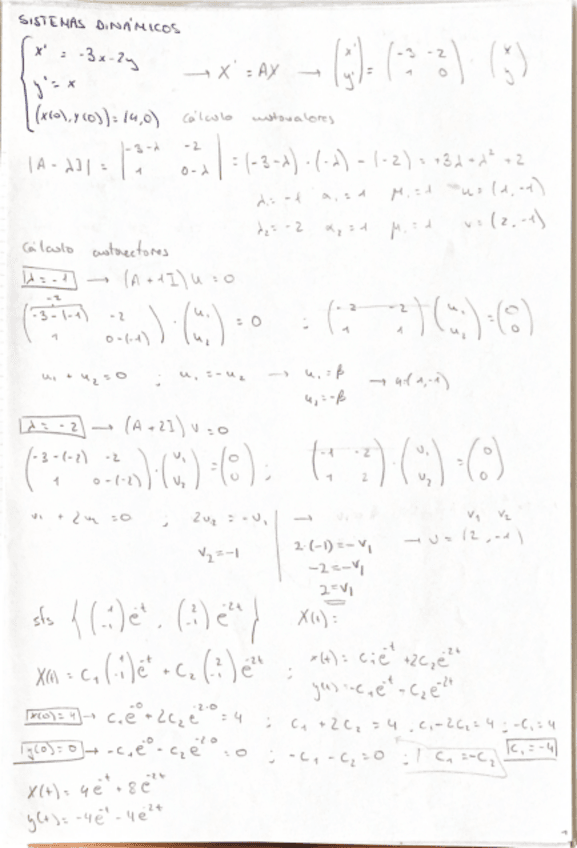 SISTEMAS DINÁMICOS
x' = -3x-2y
y' = x
(x(0), y(0)) = (4,0)
→ X' = AX → (x' y') = (-3 -2 1 0) · (x y)
Cálculo autovalores
|A - λI| = |-3-λ -2 1 0-λ| = (-3-λ) · (-λ) - (-2) = +3λ+λ² +2
λ₁ = -1 α₁ = 1 μ₁ = 1 u = (1, -1)
λ₂ = -2 α₂ = 1 μ₁ = 1 v = (2, -1)
Cálculo autovectores
λ = -1 → (A + 1I) u = 0
-2
(-3-(-1) -2 1 0-(-1)) · (u₁ u₂) = 0 ; (-2 -2 1 1) (u₁ u₂) = (0 0)
u₁ + u₂ = 0 ; u₁ = -u₂ → u₁ = β u₂ = -β → u(1,-1)
λ = -2 → (A + 2I) v = 0
(-3-(-2) -2 1 0-(-2)) · (v₁ v₂) = (0 0) ; (-1 -2 1 2) · (v₁ v₂) = (0 0)
v₁ + 2v₂ = 0 ; 2v₂ = -v₁ →
v₂ = -1
2·(-1) = -v₁
-2 = -v₁
2 = v₁
v₁ v₂
→ v = (2, -1)
sfs { (1 -1) e^-t , (2 -1) e^-2t } X(t):
X(t) = C₁ (1 -1) e^-t + C₂ (2 -1) e^-2t ; x(t) = C₁e^-t + 2C₂e^-2t
y(t) = -C₁e^-t - C₂e^-2t
x(0) = 4 → C₁e^-0 + 2C₂e^-2·0 = 4 ; C₁ + 2C₂ = 4 ; C₁ - 2C₁ = 4 ; -C₁ = 4
y(0) = 0 → -C₁e^-0 - C₂e^-2·0 = 0 ; -C₁ - C₂ = 0 ; C₁ = -C₂ C₁ = -4
X(t) = 4e^-t + 8e^-2t
y(t) = -4e^-t - 4e^-2t
1